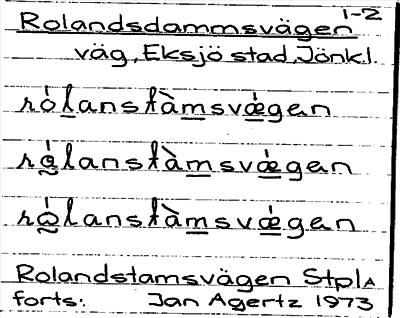 1-2
Rolandsdammsvägen
väg, Eksjö stad, Jönk.l.
rólanstàmsvǽgen
rǻlanstàmsvǽgen
ró̰lanstàmsvǽgen
Rolandstamsvägen StplA
forts: Jan Agertz 1973